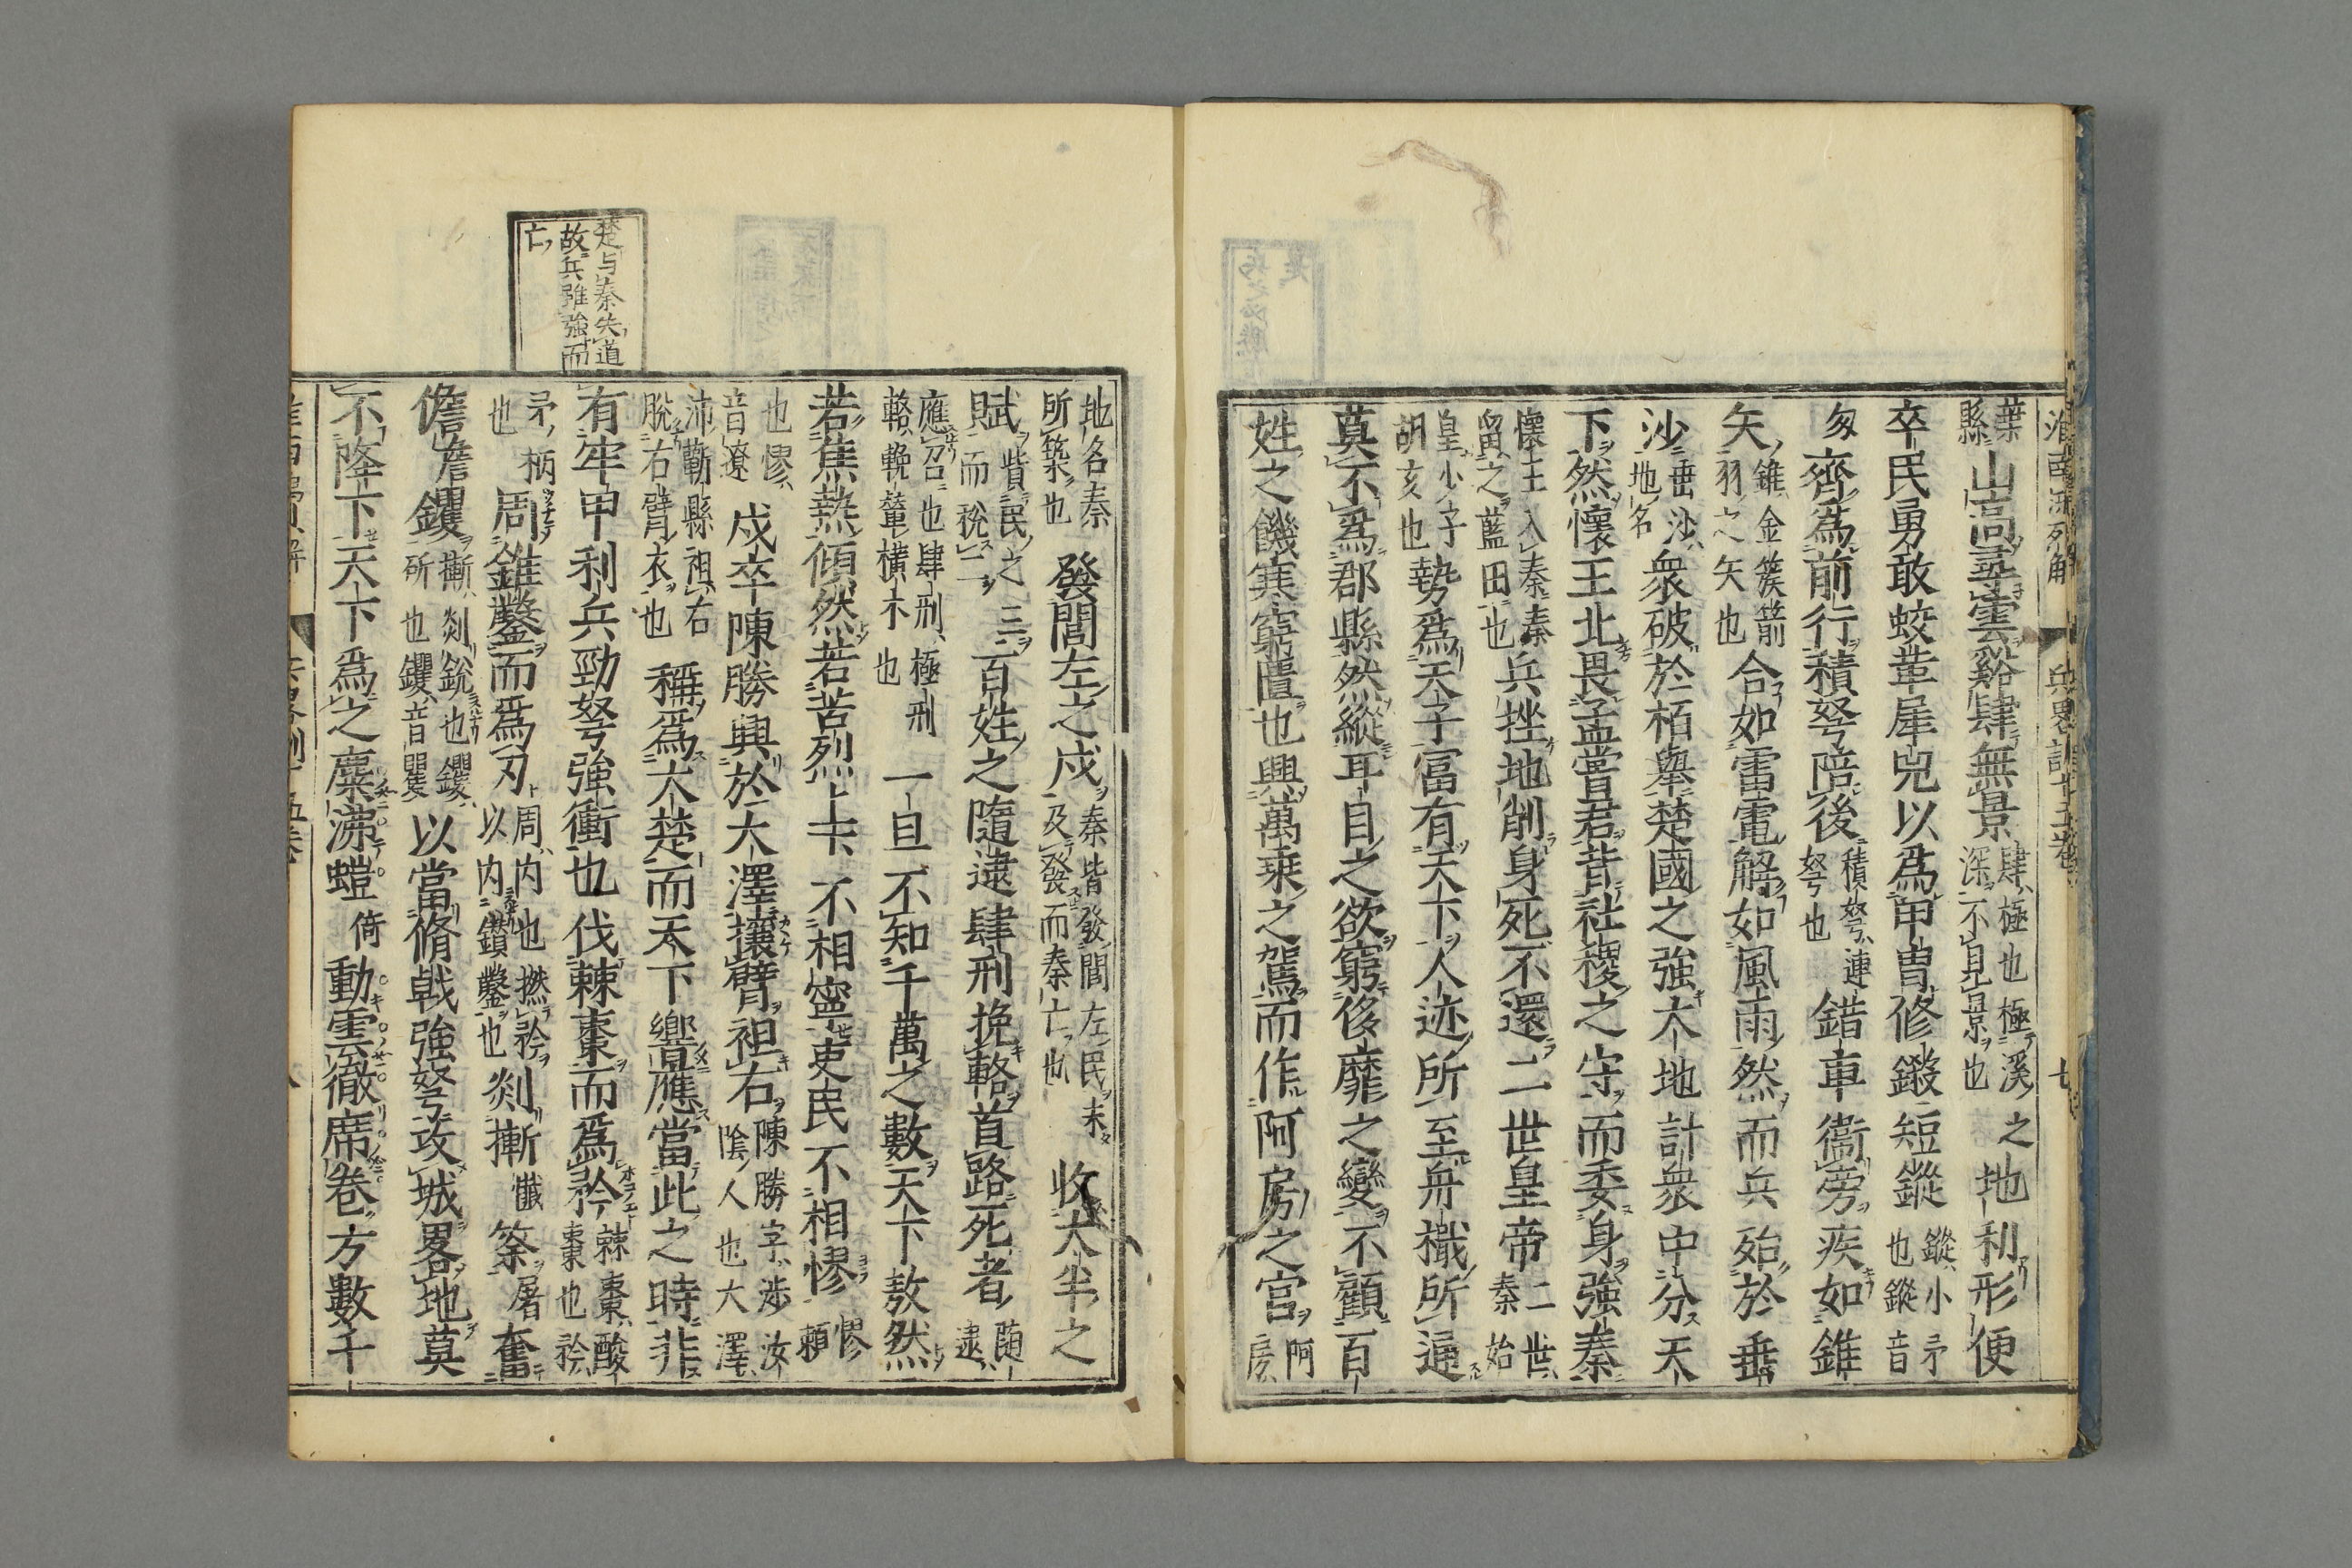 淮南鴻烈解 兵畧訓十五卷 七
葉縣山高尋雲谿肆無景肆極也極溪深不見景也之地利形便
卒民勇敢蛟革犀兕以爲甲冑修鎩短鏦鏦小矛也鏦音
匆齊爲前行積弩陪後積弩連弩也錯車衞旁疾如錐
矢錐金簇箭羽之矢也合如雷電解如風雨然而兵殆於垂
沙垂沙地名衆破於栢舉楚國之強大地計衆中分天
下然懷王北畏孟嘗君背社稷之守而委身強秦
懷王入秦秦留之藍田也兵挫地削身死不還二世皇帝二世秦始
皇少子胡亥也勢爲天子富有天下人迹所至舟檝所通
莫不爲郡縣然縱耳目之欲窮侈靡之變不顧百
姓之饑寒窮匱也興萬乗之駕而作阿房之宮阿房
地名秦所築也發閭左之戍秦皆發閭左民未及發而秦亡也收大半之
賦貲民之三而稅二百姓之隨逮肆刑挽輅首路死者隨逮
應召也肆刑極刑輅輓輦橫木也一旦不知千萬之數天下敖然
若焦熱傾然若苦烈上下不相寧吏民不相憀憀頼
也憀音遼戍卒陳勝興於大澤攘臂袒右陳勝字涉汝陰人也大澤
沛蘄縣袒右脫右臂衣也稱爲大楚而天下響應當此之時非
有牢甲利兵勁弩強衝也伐棘棗而爲矜棘棗酸棗也矜
矛柄也周錐鑿而爲刃周内也撚矜以内鑚鑿也剡摲㦰筡屠奮
儋澹钁摲剡銳也钁斫也钁音瞿以當脩戟強弩攻城畧地莫
不降下天下爲之麋沸螘倚動雲徹席卷方數千
楚与秦失道
故兵雖強而
亡